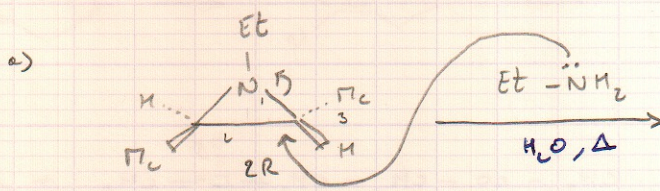 a)
Et
N
H
Me
3
Me
H
2R
Et - N̈H₂
H₂O, Δ